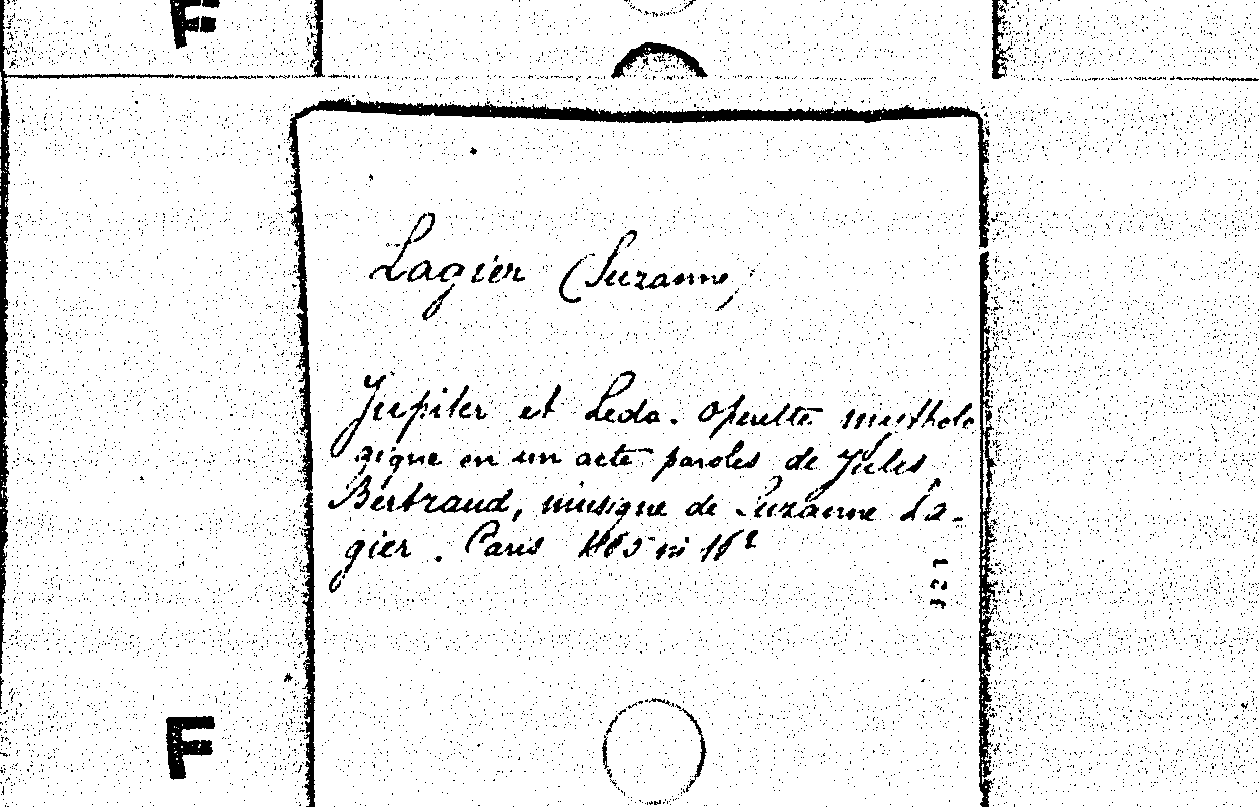 F
Lagier (Suzanne)
Jupiter et Leda. Operette mytholo
gique en un acte paroles de Jules
Bertrand, musique de Suzanne La-
gier. Paris 1865 in
F